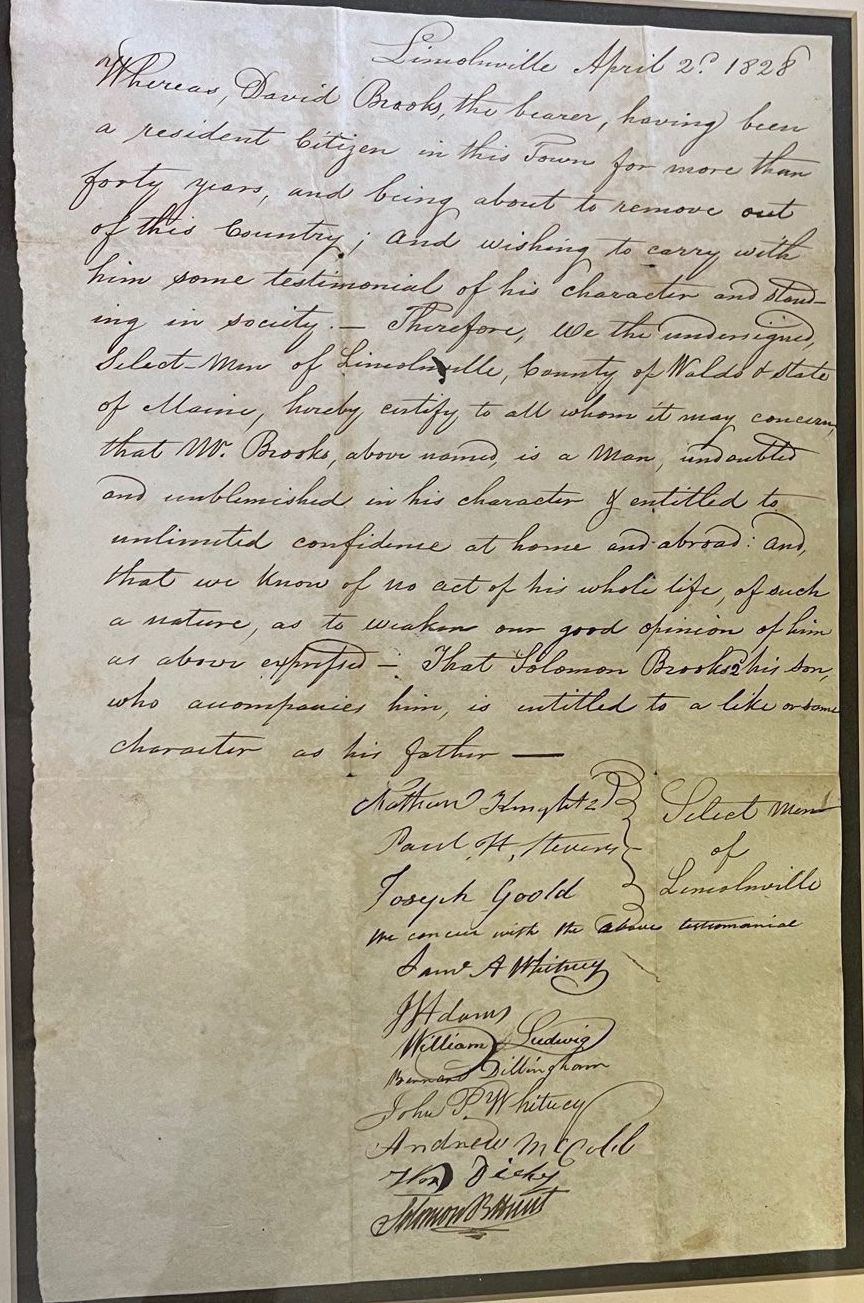 Lincolnville April 2d. 1828
Whereas, David Brooks, the bearer, having been
a resident Citizen in this Town for more than
forty years, and being about to remove out
of this Country; And wishing to carry with
him some testimonial of his character and stand-
ing in society. — Therefore, We the undersigned,
Select-Men of Lincolnville, County of Waldo & State
of Maine, hereby certify to all whom it may concern,
that Mr. Brooks, above named, is a Man, undoubted
and unblemished in his character & entitled to
unlimited confidence at home and abroad: And,
that we know of no act of his whole life, of such
a nature, as to weaken our good opinion of him
as above expressed — That Solomon Brooks 2d his son,
who accompanies him, is entitled to a like or same
character as his father —
Nathan Knight 2d
Paul H. Stevens
Joseph Goold
Select Men
of
Lincolnville
We concur with the above testimonial
Saml A Whitney
J Adams
William Ludwig
Dillingham
John P. Whitney
Andrew McCobb
Wm Dicky
Solomon B Hunt